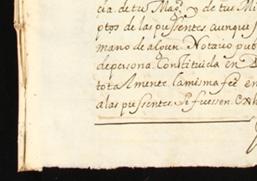 cia. de tu Mag.d y de tus Mi
ptos de las pressentes aunque
mano de algun Notario pub
de persona Constituida en D
totalmente la misma fee en
a las pressentes, si fuessen exh